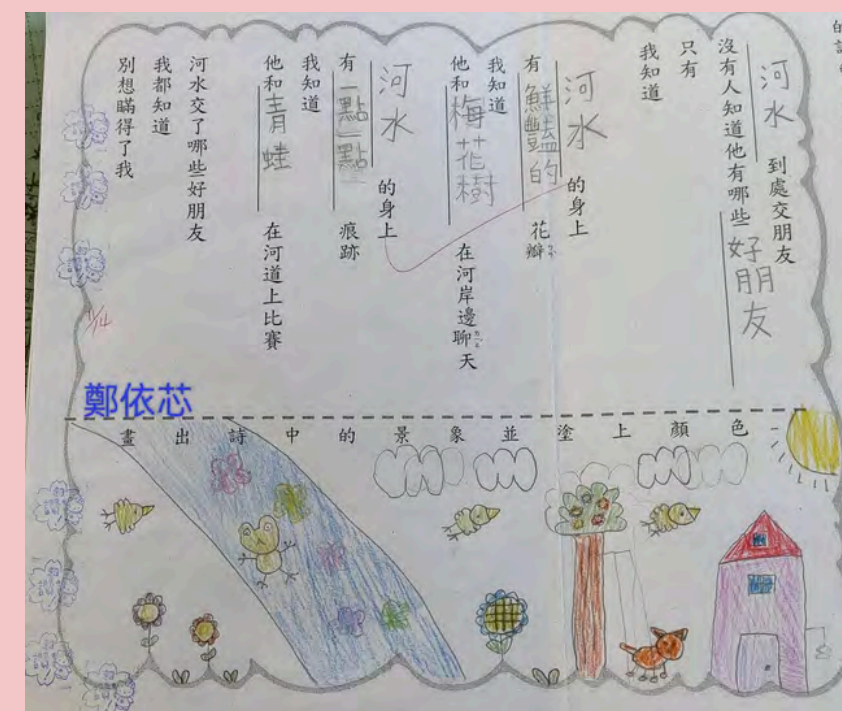 河水 到處交朋友
沒有人知道他有哪些好朋友
只有
我知道
河水 的身上
有 鮮豔的 花瓣
我知道
他和 梅花樹 在河岸邊聊天
河水 的身上
有 一點一點 痕跡
我知道
他和 青蛙 在河道上比賽
河水交了哪些好朋友
我都知道
別想瞞得了我
11/14
鄭依芯
畫出詩中的景象並塗上顏色